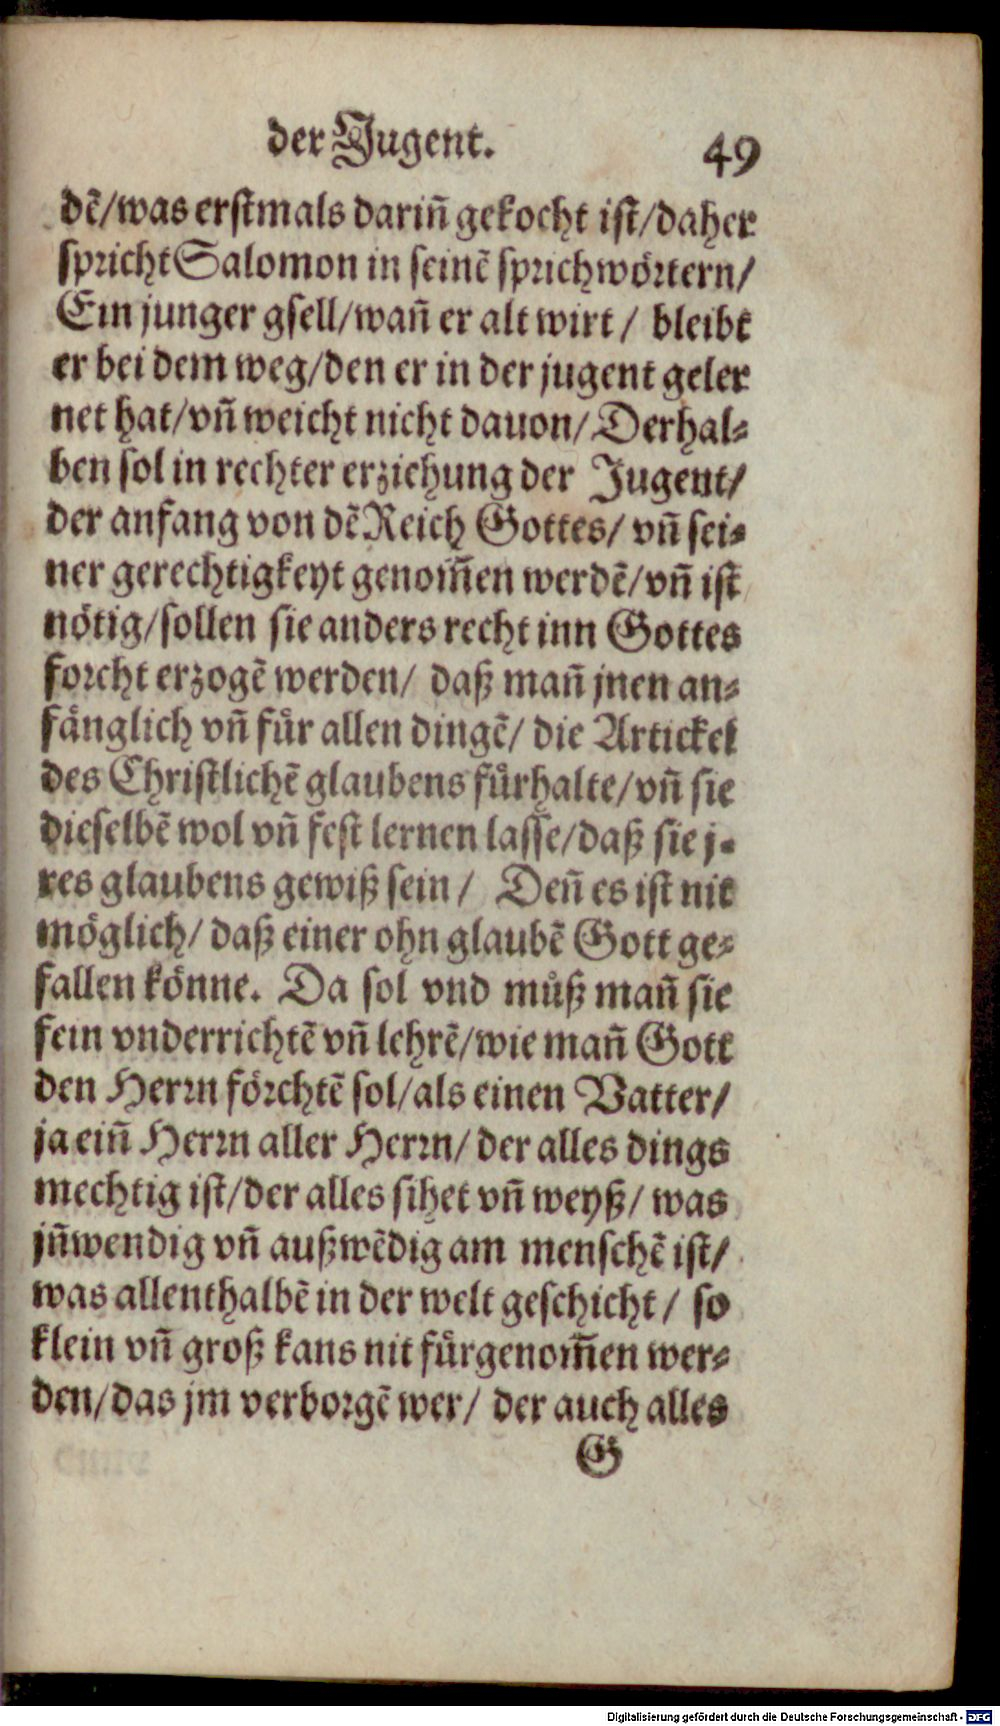 der Jugent. 49
dẽ/was erstmals dariñ gekocht ist/daher
spricht Salomon in seinẽ sprichwörtern/
Ein junger gsell/wañ er alt wirt/ bleibt
er bei dem weg/den er in der jugent geler
net hat/vñ weicht nicht dauon/Derhal-
ben sol in rechter erziehung der Jugent/
der anfang von dẽ Reich Gottes/ vñ sei-
ner gerechtigkeyt genom̃en werdẽ/vñ ist
nötig/sollen sie anders recht inn Gottes
forcht erzogẽ werden/ daß mañ jnen an-
fänglich vñ für allen dingẽ/ die Artickel
des Christlichẽ glaubens fürhalte/vñ sie
dieselbẽ wol vñ fest lernen lasse/daß sie j-
res glaubens gewiß sein/ Deñ es ist nit
möglich/ daß einer ohn glaubẽ Gott ge-
fallen könne. Da sol vnd můß mañ sie
fein vnderrichtẽ vñ lehrẽ/wie mañ Gott
den Herrn förchtẽ sol/als einen Vatter/
ja eiñ Herrn aller Herrn/ der alles dings
mechtig ist/der alles sihet vñ weyß/ was
jñwendig vñ außwẽdig am menschẽ ist/
was allenthalbẽ in der welt geschicht/ so
klein vñ groß kans nit fürgenom̃en wer-
den/das jm verborgẽ wer/ der auch alles
G
Digitalisierung gefördert durch die Deutsche Forschungsgemeinschaft - DFG